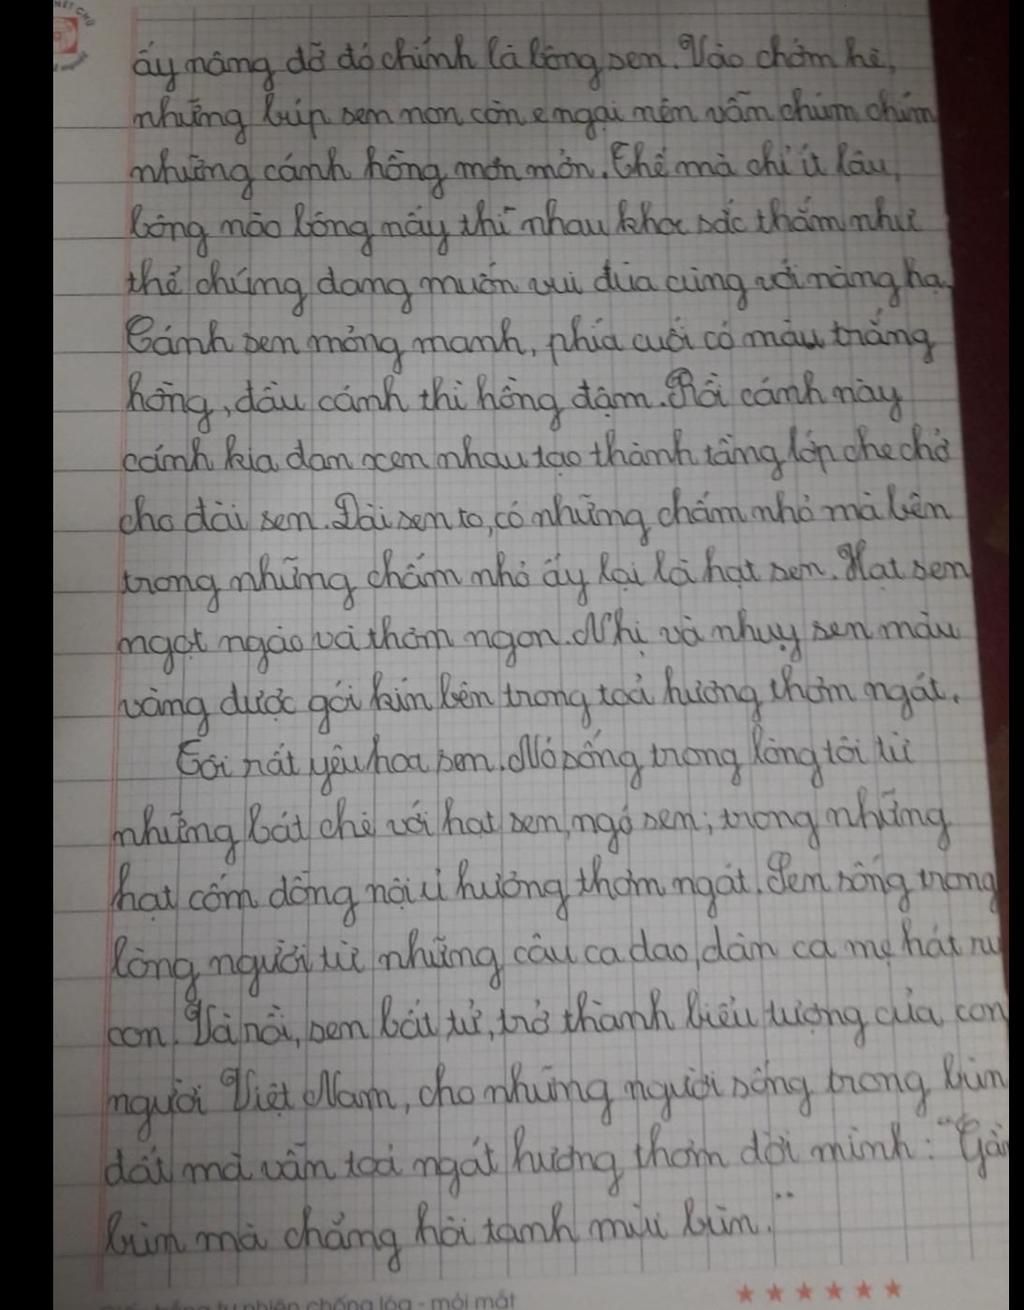 NÉT CHỮ
ấy nâng đỡ đó chính là bông sen. Vào chớm hè,
những búp sen non còn e ngại nên vẫn chúm chím
những cánh hồng mơn mởn. Thế mà chỉ ít lâu,
bông nào bông nấy thi nhau khoe sắc thắm như
thể chúng đang muốn vui đùa cùng với nàng hạ.
Cánh sen mỏng manh, phía cuối có màu trắng
hồng, đầu cánh thì hồng đậm. Rồi cánh này
cánh kia đan xen nhau tạo thành tầng lớp che chở
cho đài sen. Đài sen to, có những chấm nhỏ mà bên
trong những chấm nhỏ ấy lại là hạt sen. Hạt sen
ngọt ngào và thơm ngon. Nhị và nhụy sen màu
vàng được gói kín bên trong toả hương thơm ngát.
Tôi rất yêu hoa sen. Nó sống trong lòng tôi từ
những bát chè với hạt sen, ngó sen; trong những
hạt cốm đồng nội ủ hương thơm ngát. Sen sống trong
lòng người từ những câu ca dao, dân ca mẹ hát ru
con. Và rồi, sen bất tử, trở thành biểu tượng của con
người Việt Nam, cho những người sống trong bùn
đất mà vẫn toả ngát hương thơm đời mình: "Gần
bùn mà chẳng hôi tanh mùi bùn."
chống lóa - mỏi mắt